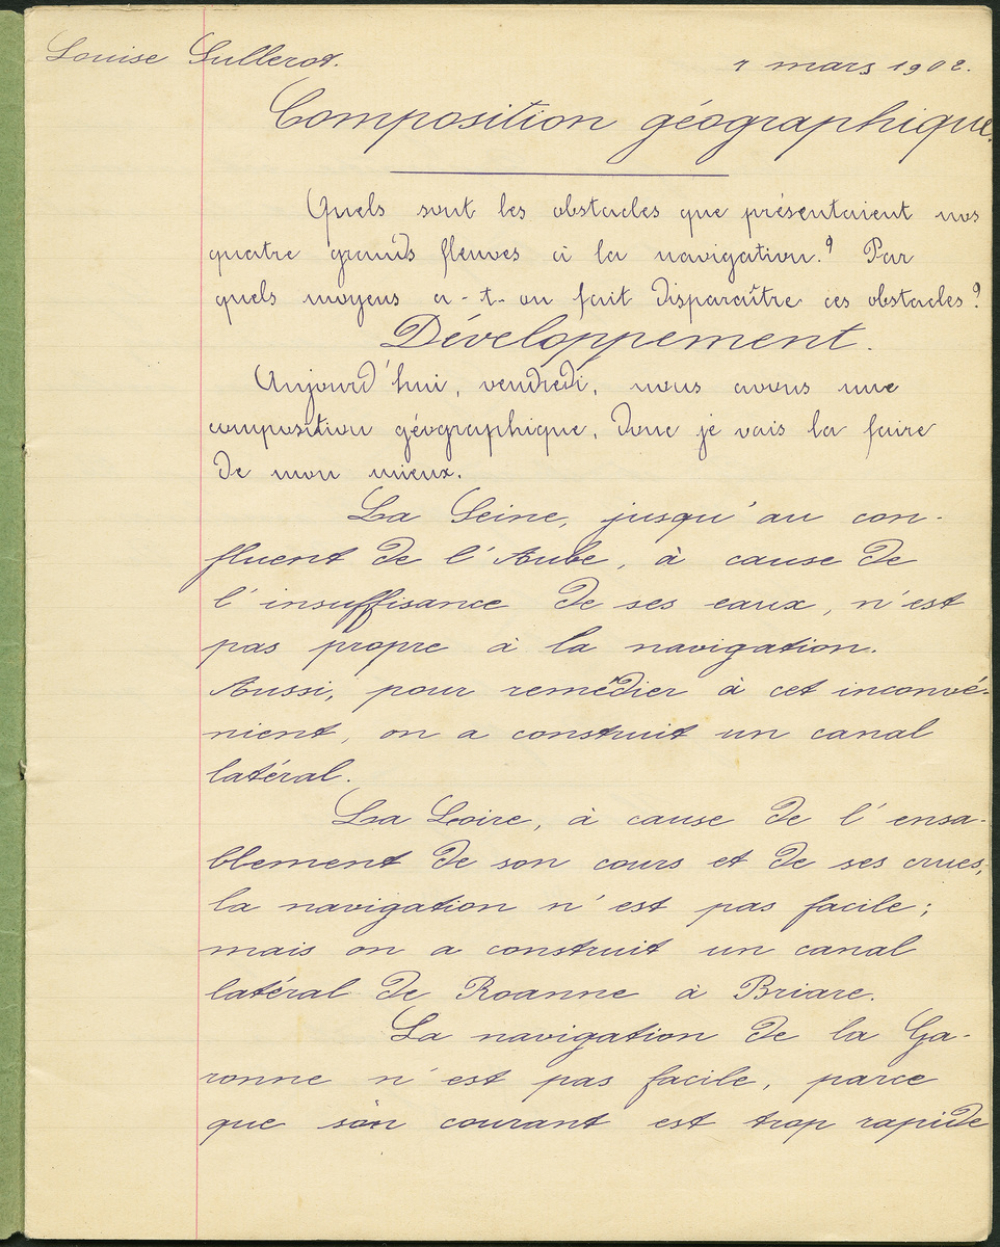 Louise Sullerot. 7 mars 1902.
Composition géographique.
Quels sont les obstacles que présentaient nos
quatre grands fleuves à la navigation? Par
quels moyens a-t-on fait disparaître ces obstacles?
Développement.
Aujourd'hui, vendredi, nous avons une
composition géographique, donc je vais la faire
de mon mieux.
La Seine, jusqu'au con-
fluent de l'Aube, à cause de
l'insuffisance de ses eaux, n'est
pas propre à la navigation.
Aussi, pour remédier à cet inconvé-
nient, on a construit un canal
latéral.
La Loire, à cause de l'ensa-
blement de son cours et de ses crues,
la navigation n'est pas facile;
mais on a construit un canal
latéral de Roanne à Briare.
La navigation de la Ga-
ronne n'est pas facile, parce
que son courant est trop rapide